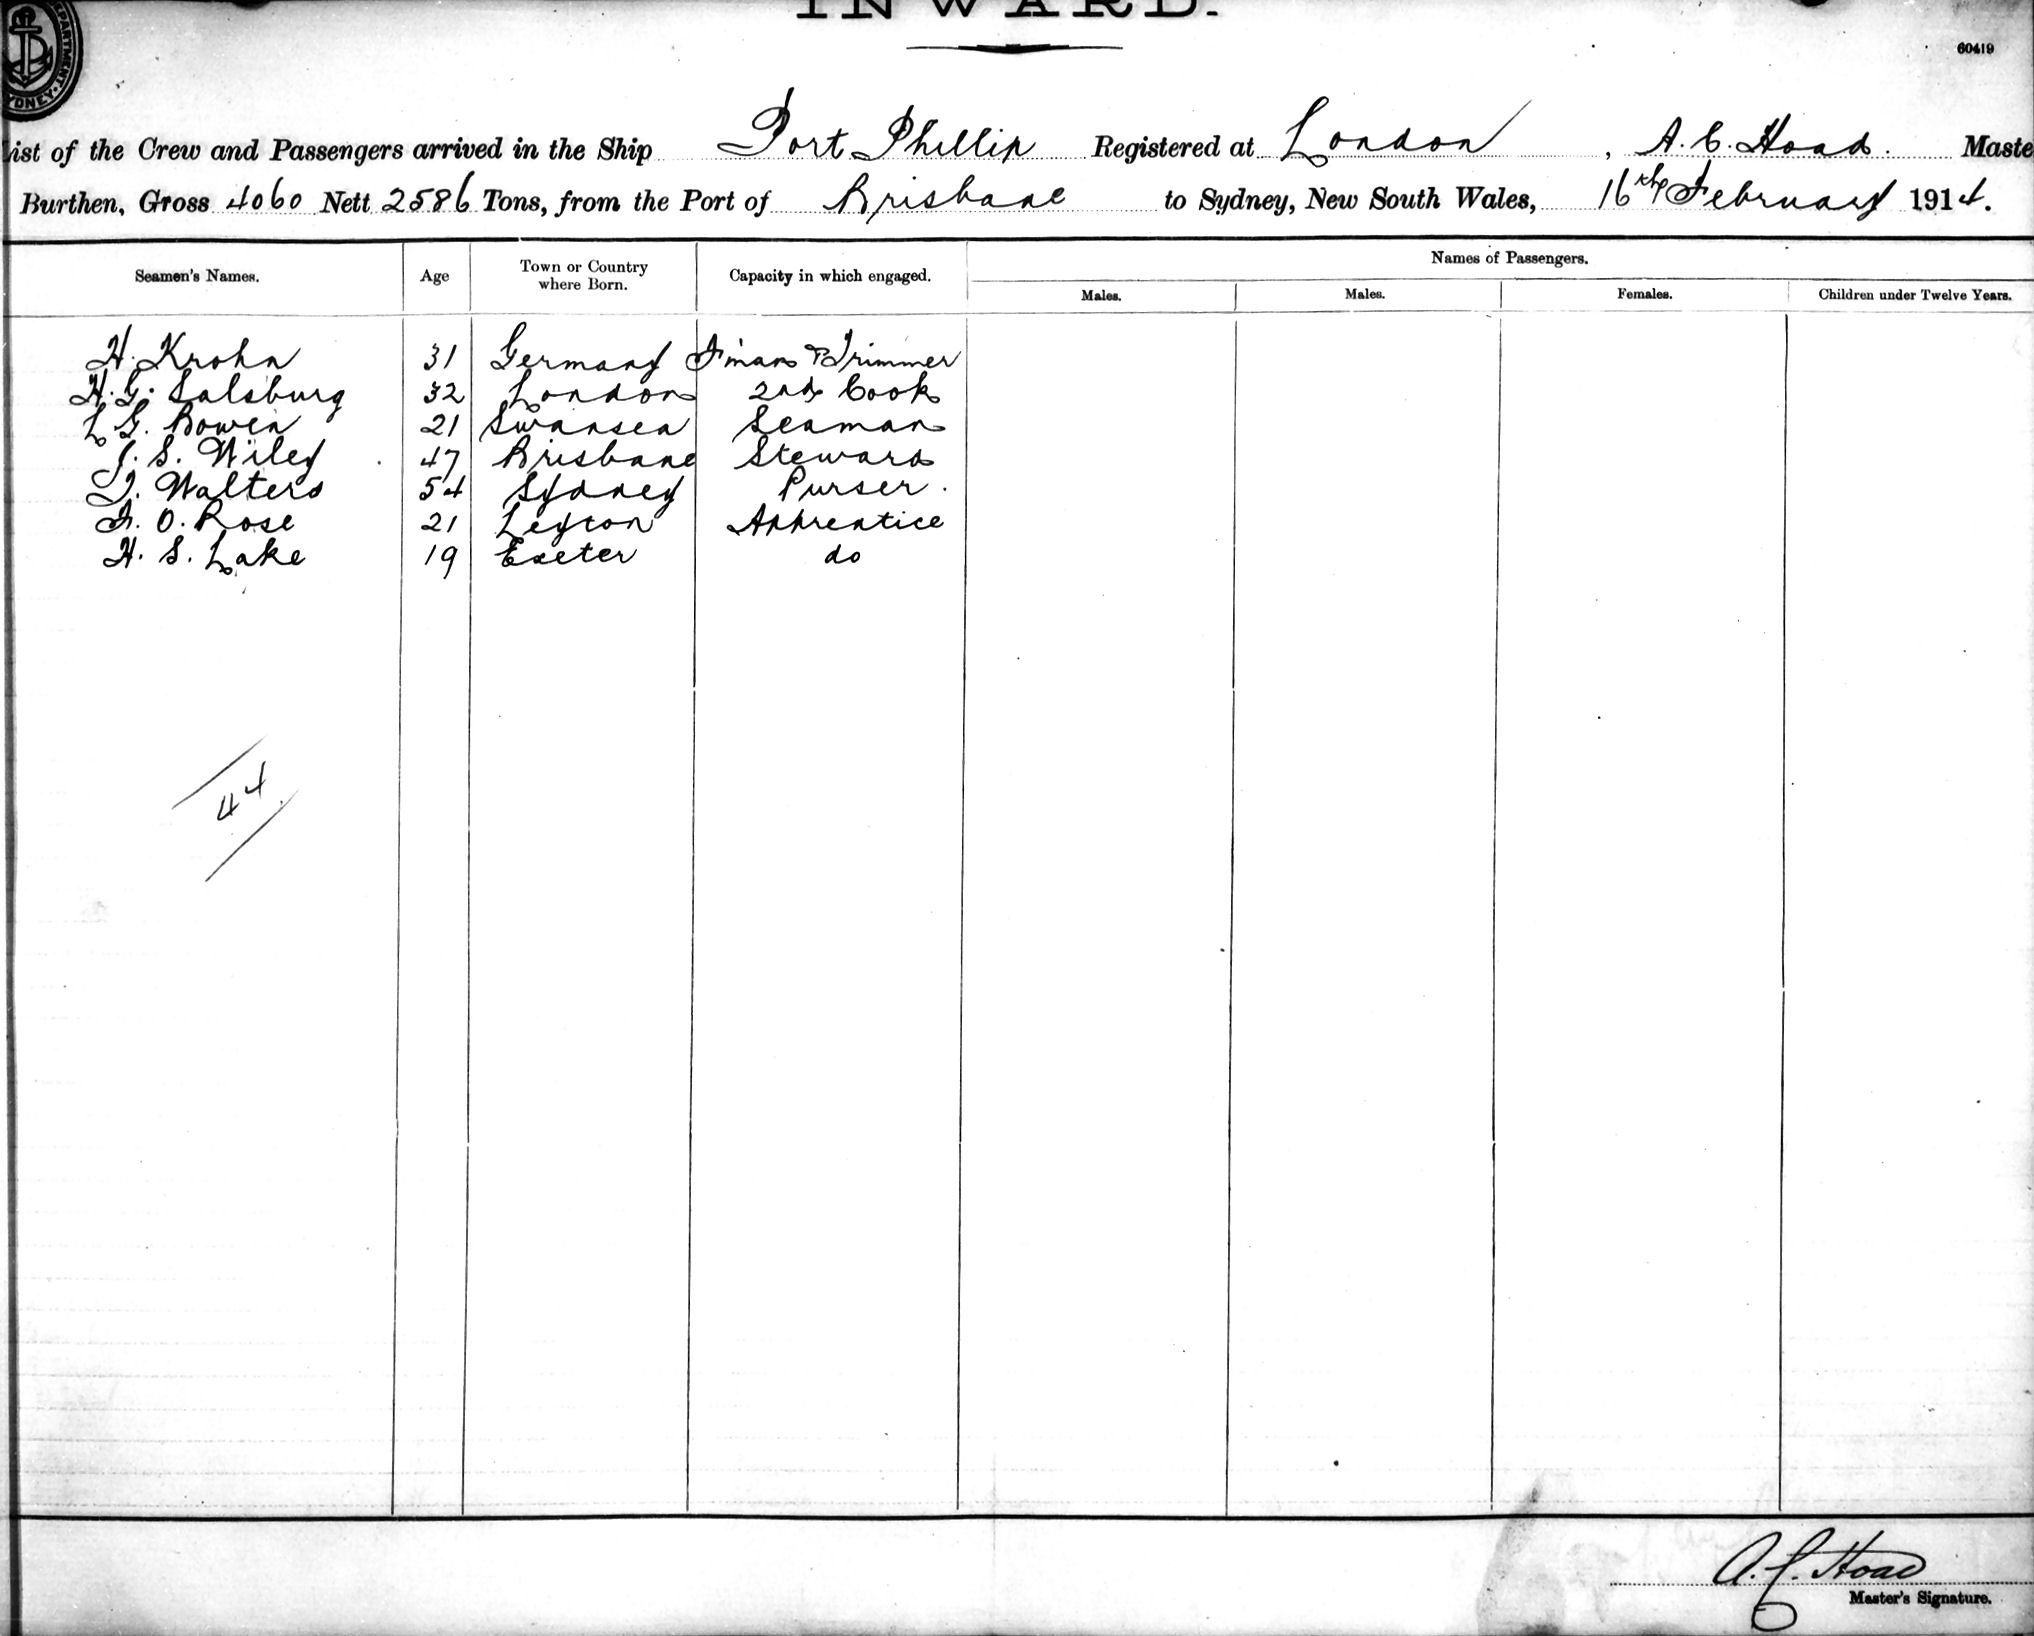 INWARD.
60419
DEPARTMENT. SYDNEY.
List of the Crew and Passengers arrived in the Ship Port Phillip Registered at London, A. C. Hoad. Maste
Burthen, Gross 4060 Nett 2586 Tons, from the Port of Brisbane to Sydney, New South Wales, 16th February 1914.
Seamen's Names. Age Town or Country where Born. Capacity in which engaged. Names of Passengers.
Males. Males. Females. Children under Twelve Years.
H. Krohn 31 Germany F'man & Trimmer
H. G. Salsburg 32 London 2nd Cook
L G. Bowen 21 Swansea Seaman
J. S. Wiley 47 Brisbane Steward
J. Walters 54 Sydney Purser.
F. O. Rose 21 Leyton Apprentice
H. S. Lake 19 Exeter do
44
A. C. Hoad
Master's Signature.